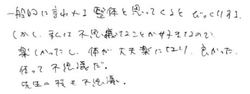 一般的に言われる整体と思ってくるとびっくりする。
しかし、私は不思議なことが好きなので
楽しかったし、体が大丈夫になり、良かった。
任って不思議だ。
先生の技も不思議。